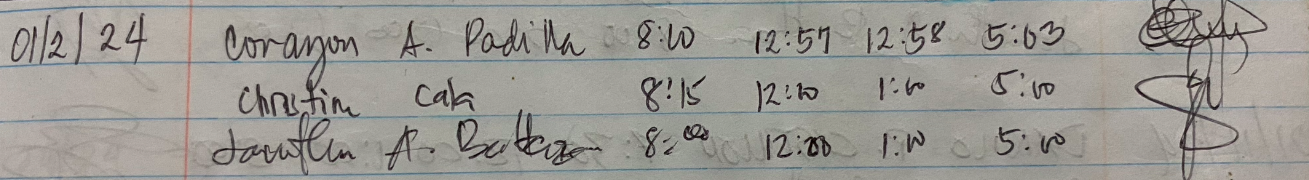 01/2/24 Corazon A. Padilla 8:00 12:57 12:58 5:03
Christine Cala 8:15 12:00 1:00 5:00
A. 8:00 12:00 1:00 5:00